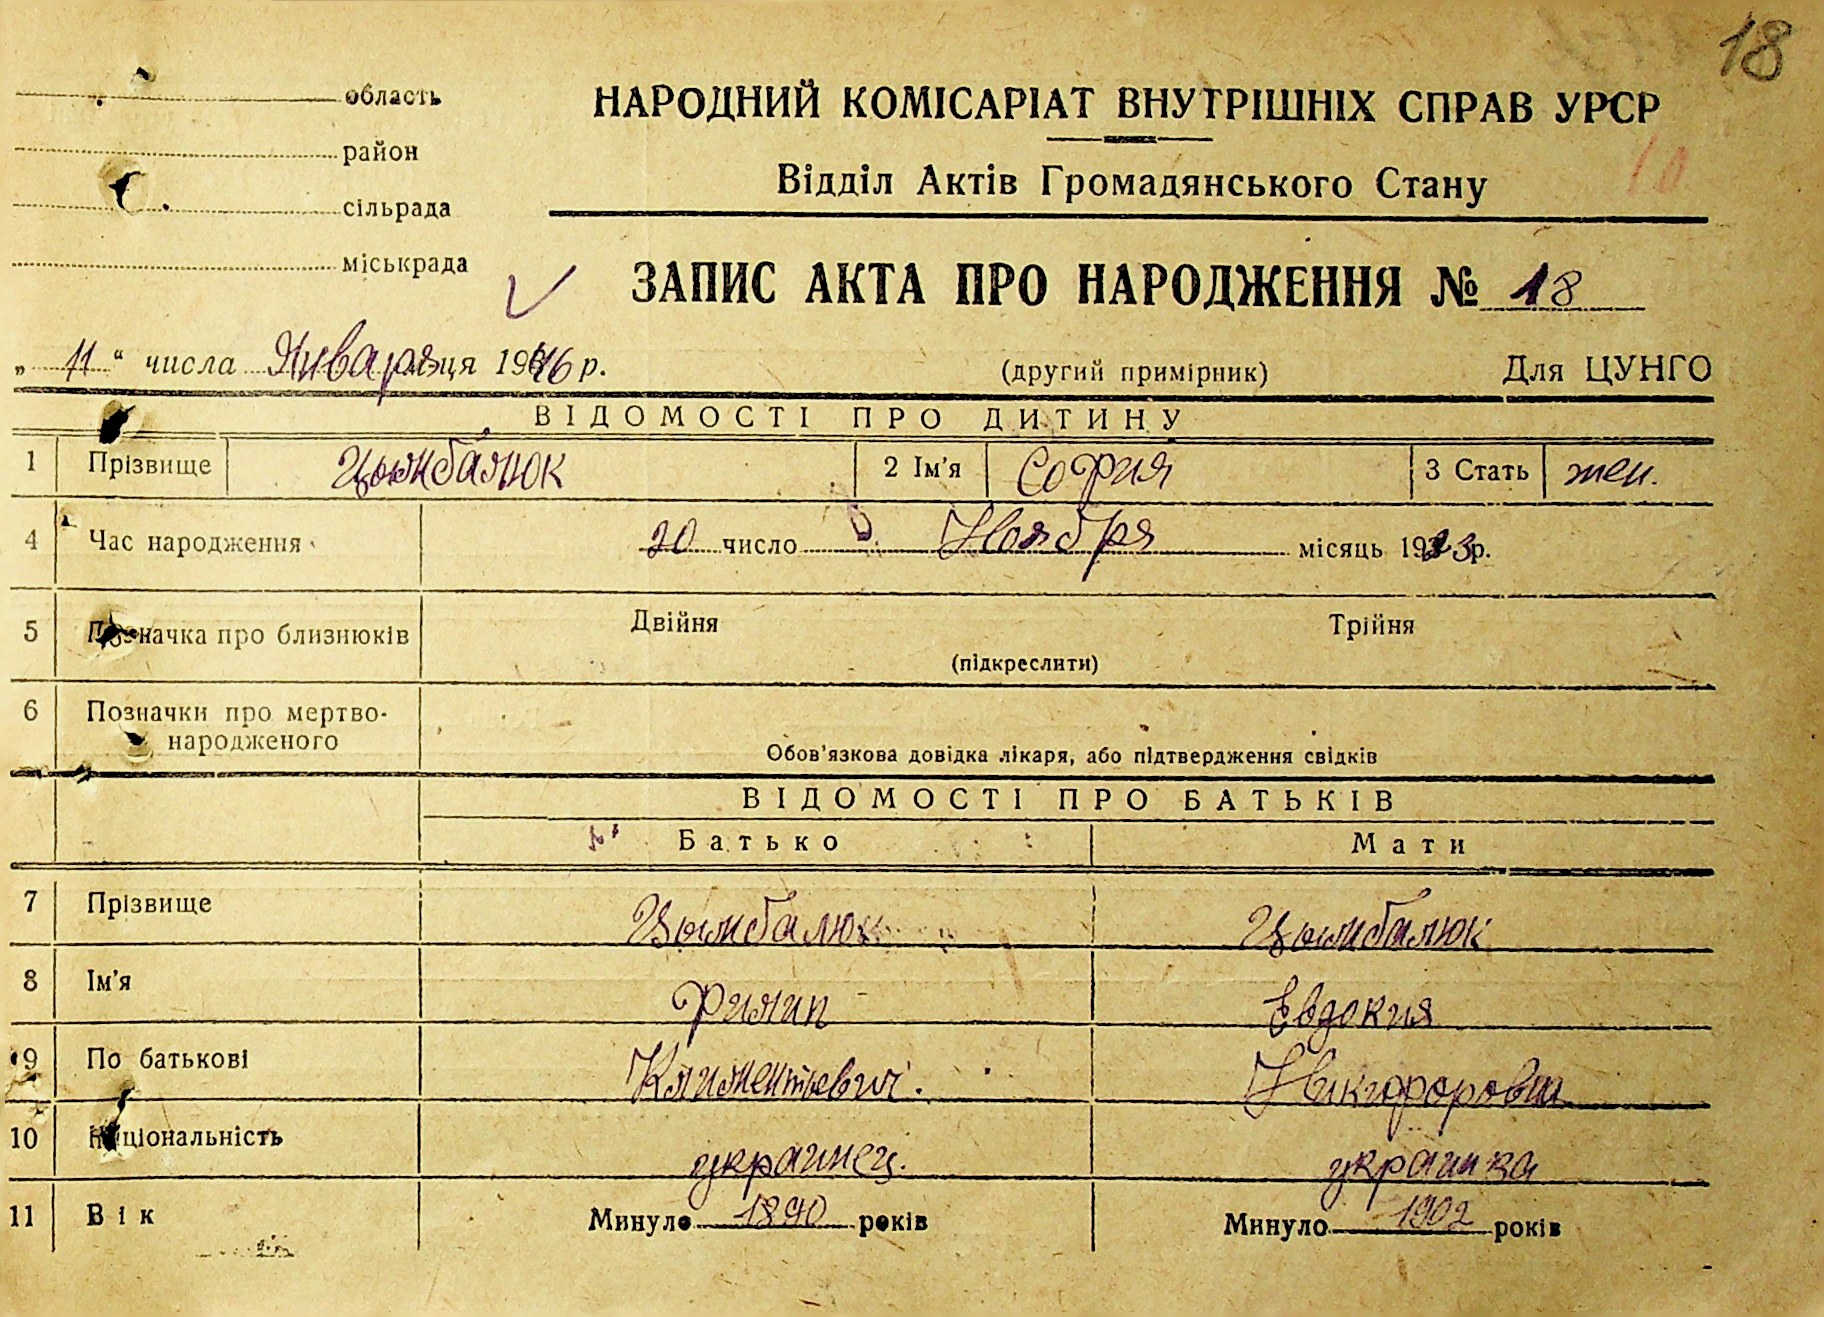 18
область
НАРОДНИЙ КОМІСАРІАТ ВНУТРІШНІХ СПРАВ УРСР
район
10
Відділ Актів Громадянського Стану
сільрада
міськрада
ЗАПИС АКТА ПРО НАРОДЖЕННЯ № 18
„ 11 “ числа Января м-ця 1946 р. (другий примірник) Для ЦУНГО
ВІДОМОСТІ ПРО ДИТИНУ
1 Прізвище Цымбалюк 2 Ім’я София 3 Стать жен.
4 Час народження 20 число Ноября місяць 1923 р.
5 Позначка про близнюків Двійня Трійня
(підкреслити)
6 Позначки про мертво-
народженого
Обов’язкова довідка лікаря, або підтвердження свідків
ВІДОМОСТІ ПРО БАТЬКІВ
Батько Мати
7 Прізвище Цымбалюк Цымбалюк
8 Ім’я Филип Евдокия
9 По батькові Климентьевич. Никифоровна
10 Національність украинец. украинка
11 Вік Минуло 1890 років Минуло 1902 років